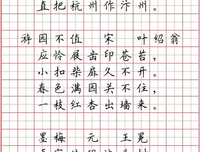 直把杭州作汴州。
游园不值 宋 叶绍翁
应怜屐齿印苍苔，
小扣柴扉久不开。
春色满园关不住，
一枝红杏出墙来。
墨梅 元 王冕